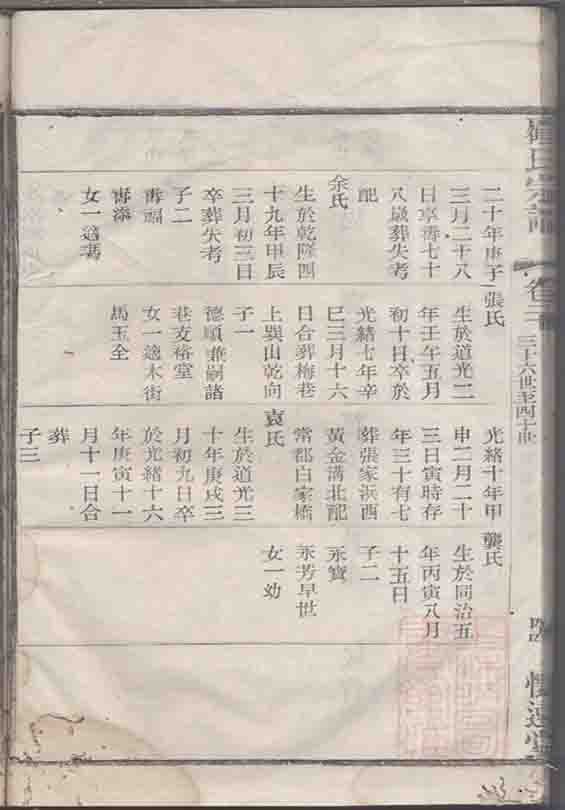 氏宗譜
卷三
三十六世至四十世
二十年庚子
三月二十八
日享壽七十
八歲葬失考
配
余氏
生於乾隆四
十九年甲辰
三月初三日
卒葬失考
子二
壽福
壽添
女一適馮
張氏
生於道光二
年壬午五月
初十日卒於
光緒七年辛
巳三月十六
日合葬梅巷
上巽山乾向
子一
德順兼嗣諸
巷支裕堂
女一適木街
馬玉全
光緒十年甲
申二月二十
三日寅時存
年三十有七
葬張家浜西
黃金溝北配
常郡白家橋
袁氏
生於道光三
十年庚戌三
月初九日卒
於光緒十六
年庚寅十一
月十一日合
葬
子三
龔氏
生於同治五
年丙寅八月
十五日
子二
永寶
永芳早世
女一幼